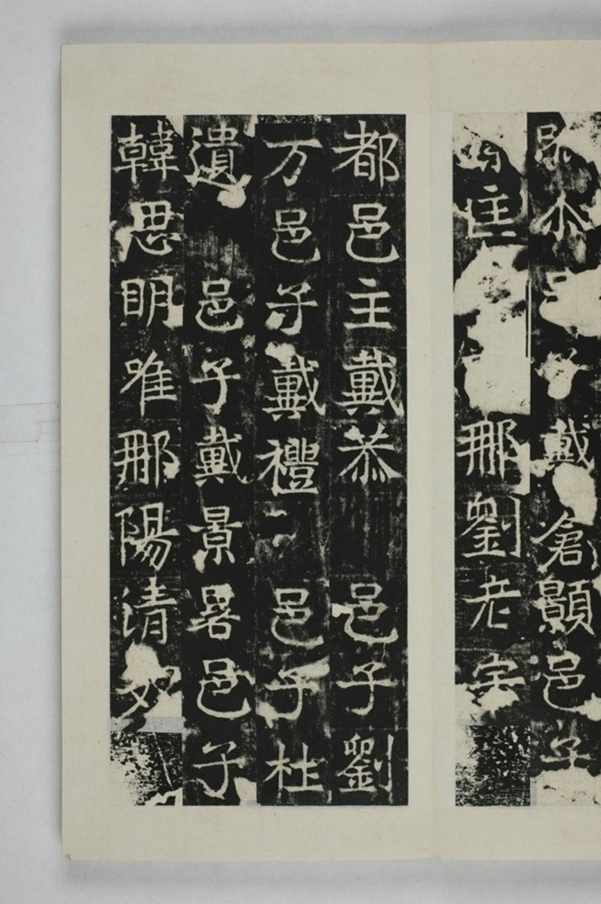 戴倉邑子
那劉老
都邑主戴恭 邑子劉
万邑子戴禮 邑子杜
遺 邑子戴景 邑子
韓思明唯那陽清奴